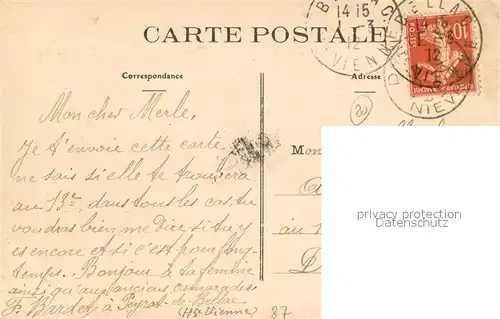 CARTE POSTALE
Correspondance
Adresse
Mon cher Merle,
Je t'envoie cette carte
ne sais si elle te trouvera
au 13e, dans tous les cas tu
voudras bien me dire si tu y
es encore et si c'est pour long-
temps. Bonjour à ta femme
ainsi qu'aux anciens camarades.
F. Bardet, à Peyrat-de-Bellac
(Hte Vienne)
87
Mon
au
14 15
12
VIENNE
10
12
NIEV
privacy protection
Datenschutz